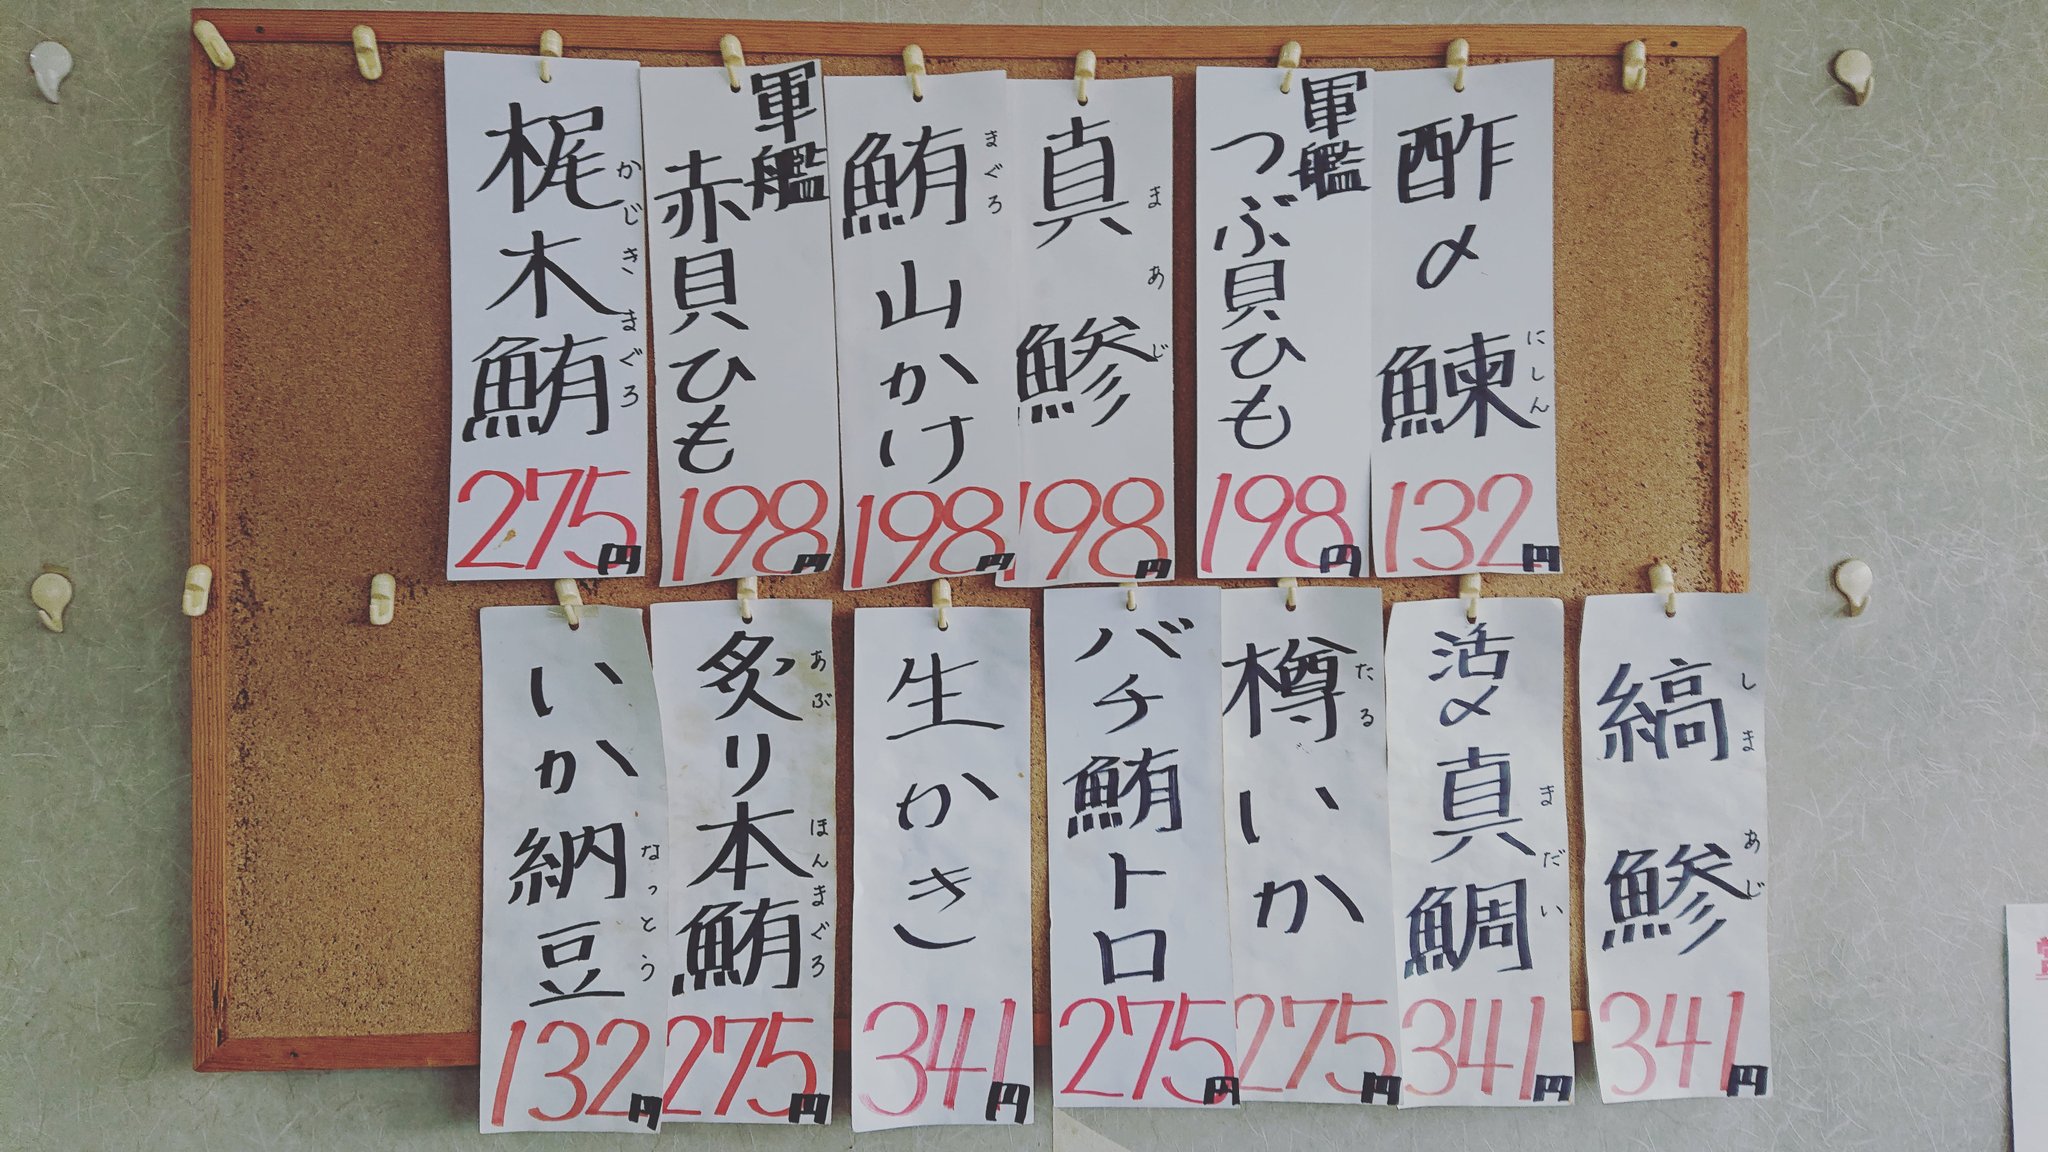 酢〆鰊
にしん
132円
軍艦
つぶ貝ひも
198円
真鯵
まあじ
198円
鮪山かけ
まぐろ
198円
軍艦
赤貝ひも
198円
梶木鮪
かじきまぐろ
275円
縞鯵
しまあじ
341円
活〆真鯛
まだい
341円
樽いか
だる
275円
バチ鮪トロ
275円
生かき
341円
炙り本鮪
あぶ
ほんまぐろ
275円
いか納豆
なっとう
132円